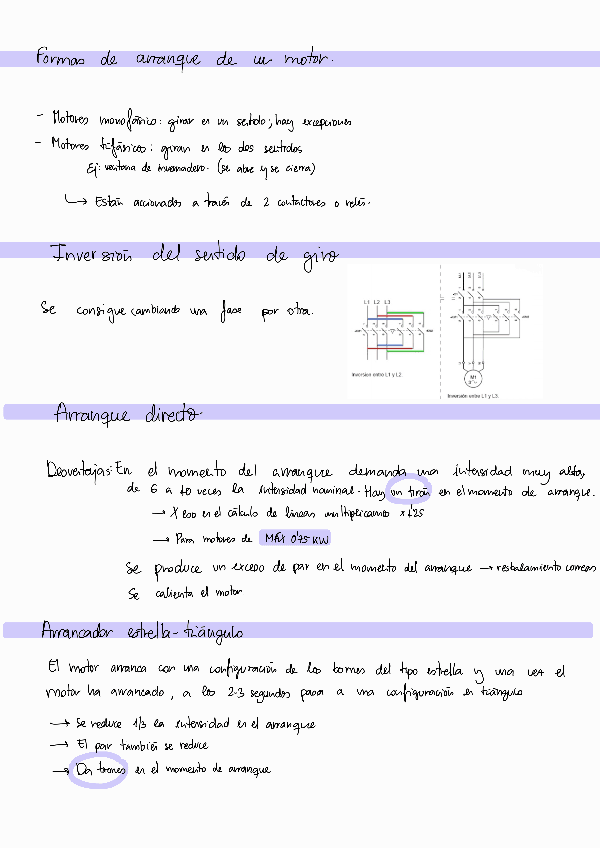 Formas de arranque de un motor.
- Motores monofásico: giran en un sentido; hay excepciones
- Motores trifásicos: giran en los dos sentidos
Ej: ventana de invernadero. (se abre y se cierra)
↳ Están accionados a través de 2 contactores o relés.
Inversión del sentido de giro
Se consigue cambiando una fase por otra.
L1 L2 L3
Inversion entre L1 y L2.
L1 L2 L3
M1
3~
Inversion entre L1 y L3.
Arranque directo
Desventajas: En el momento del arranque demanda una intensidad muy alta,
de 6 a 10 veces la intensidad nominal. Hay un tirón en el momento de arranque.
→ X eso en el cálculo de líneas multiplicamos x 1'25
→ Para motores de MÁX 0'75 KW
Se produce un exceso de par en el momento del arranque → resbalamiento correas
Se calienta el motor
Arrancador estrella-triángulo
El motor arranca con una configuración de los bornes del tipo estrella y una vez el
motor ha arrancado, a los 2-3 segundos pasa a una configuración en triángulo
→ Se reduce 1/3 la intensidad en el arranque
→ El par también se reduce
→ Da tirones en el momento de arranque